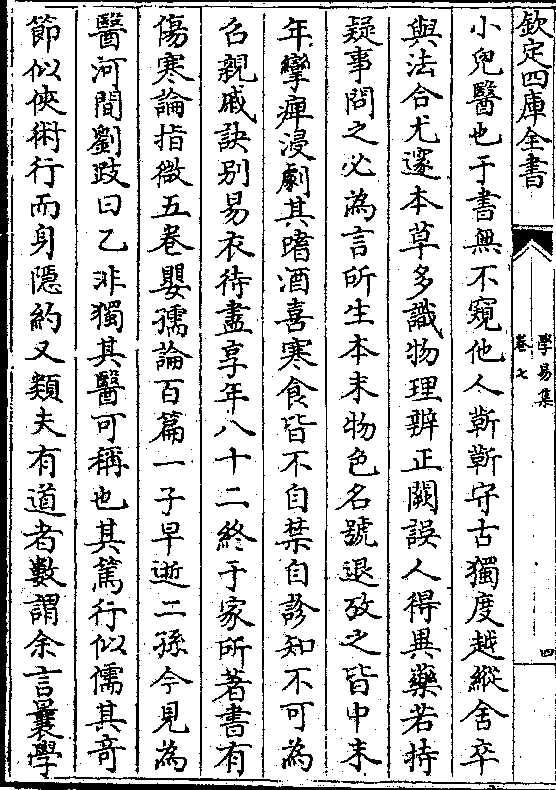 欽定四庫全書
學易集
卷七
四
小兒醫也于書無不窺他人靳靳守古獨度越縱舍卒
與法合尤邃本草多識物理辨正闕誤人得異藥若持
疑事問之必為言所生本末物色名號退攷之皆中末
年攣痺浸劇其嗜酒喜寒食皆不自禁自診知不可為
召親戚訣别易衣待盡享年八十二終于家所著書有
傷寒論指微五卷嬰孺論百篇一子早逝二孫今見為
醫河間劉跂曰乙非獨其醫可稱也其篤行似儒其竒
節似俠術行而身隱約又類夫有道者數謂余言曩學